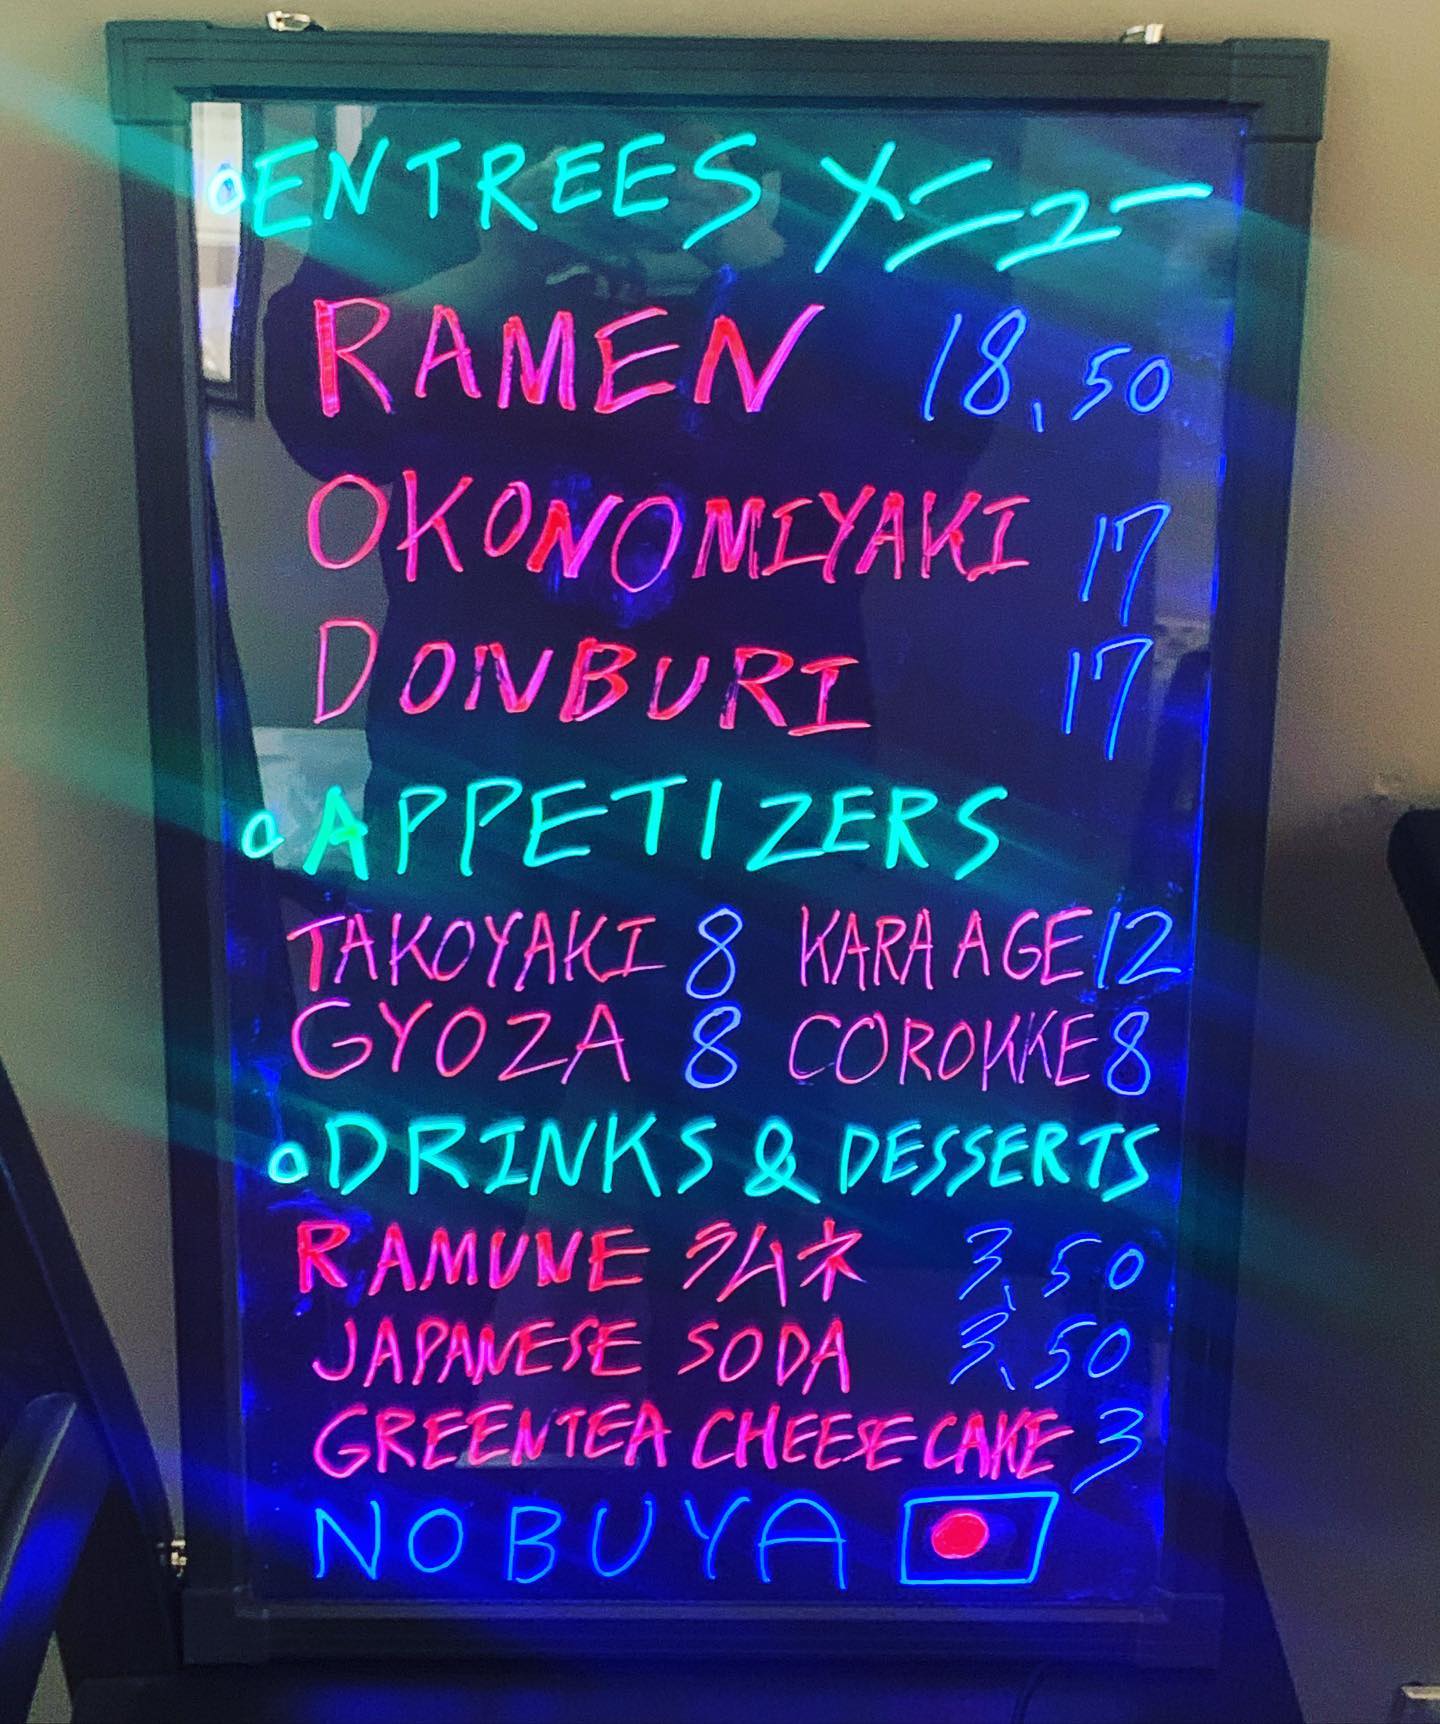 ENTREES メニュー
RAMEN 18.50
OKONOMIYAKI 17
DONBURI 17
APPETIZERS
TAKOYAKI 8 KARAAGE 12
GYOZA 8 COROKKE 8
DRINKS & DESSERTS
RAMUNE ラムネ 3.50
JAPANESE SODA 3.50
GREENTEA CHEESE CAKE 3
NOBUYA